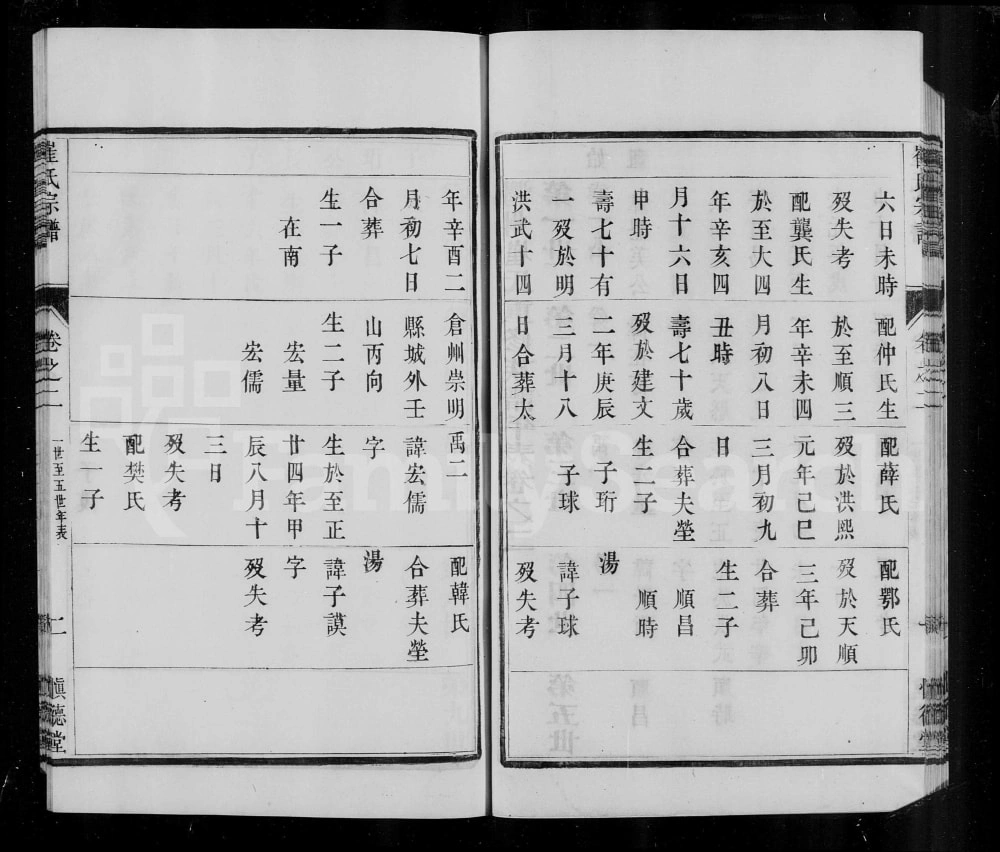 崔氏宗譜
卷之二
慎德堂
六日未時
歿失考
配龔氏生
於至大四
年辛亥四
月十六日
申時
壽七十有
一歿於明
洪武十四
配仲氏生
於至順三
年辛未四
月初八日
丑時
壽七十歲
歿於建文
二年庚辰
三月十八
日合葬太
配薛氏
歿於洪熙
元年己巳
三月初九
日
合葬夫塋
生二子
子珩
子球
配鄂氏
歿於天順
三年己卯
合葬
生二子
順昌
順時
湯
諱子球
歿失考
年辛酉二
月初七日
合葬
生一子
在南
倉州崇明
縣城外壬
山丙向
生二子
宏量
宏儒
禹二
諱宏儒
字
生於至正
廿四年甲
辰八月十
三日
歿失考
配樊氏
生一子
配韓氏
合葬夫塋
湯
諱子謨
字
歿失考
崔氏宗譜
卷之二
一世至五世年表
二
慎德堂
FamilySearch